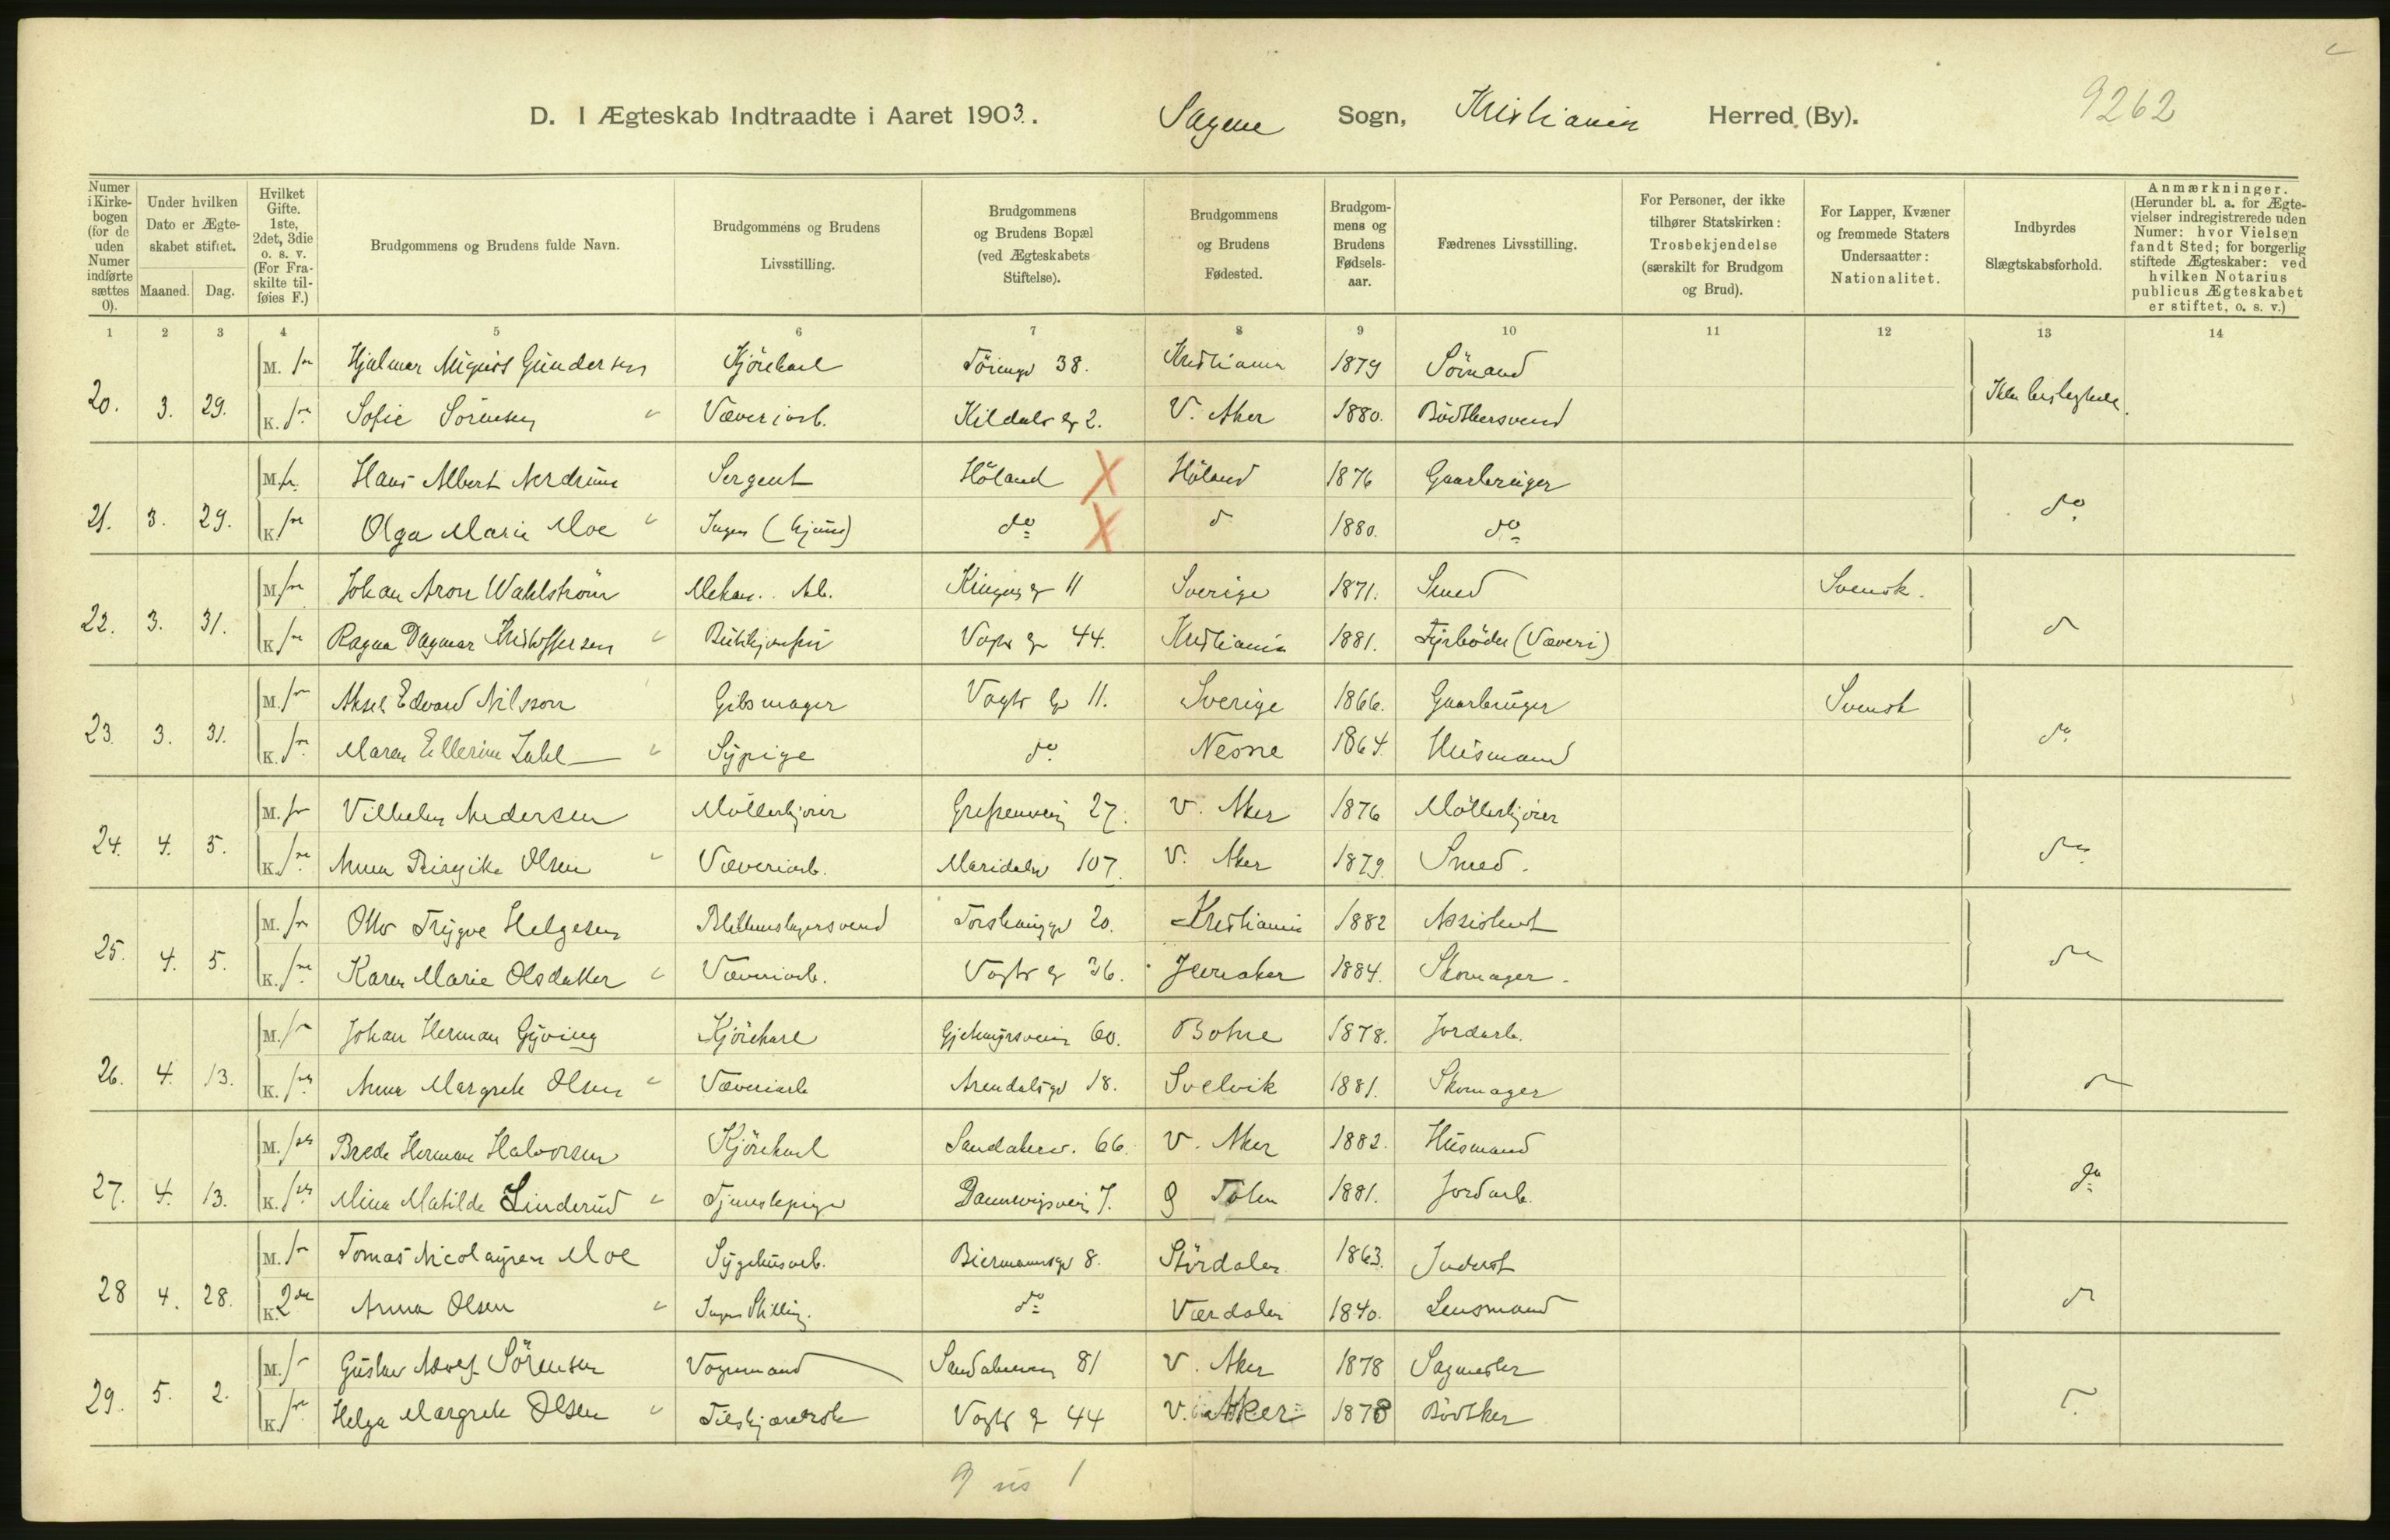 9262
D. I Ægteskab Indtraadte i Aaret 1903. Sagene Sogn, Kristiania Herred (By).
Numer i Kirkebogen (for de uden Numer indførte sættes 0).
Under hvilken Dato er Ægteskabet stiftet.
Maaned. Dag.
Hvilket Gifte. 1ste, 2det, 3die o. s. v. (For Fraskilte tilføies F.)
Brudgommens og Brudens fulde Navn.
Brudgommens og Brudens Livsstilling.
Brudgommens og Brudens Bopæl (ved Ægteskabets Stiftelse).
Brudgommens og Brudens Fødested.
Brudgommens og Brudens Fødselsaar.
Fædrenes Livsstilling.
For Personer, der ikke tilhører Statskirken: Trosbekjendelse (særskilt for Brudgom og Brud).
For Lapper, Kvæner og fremmede Staters Undersaatter: Nationalitet.
Indbyrdes Slægtskabsforhold.
Anmærkninger. (Herunder bl. a. for Ægtevielser indregistrerede uden Numer: hvor Vielsen fandt Sted; for borgerlig stiftede Ægteskaber: ved hvilken Notarius publicus Ægteskabet er stiftet, o. s. v.)
1 2 3 4 5 6 7 8 9 10 11 12 13 14
M. Hjalmar August Gundersen Kjörekarl 38. Kristiania 1879 Sömand
20. 3. 29. Ikke beslegtede.
K. Sofie Sörensen Væveriarb. Kildals g 2. V. Aker 1880. Bödkersvend
M. Hans Albert Nerdrum Sergent Höland X Höland 1876 Gaarbruger
21. 3. 29. do
K. Olga Marie Moe Ingen (hjem) do X d 1880. do
M. Johan Aron Wahlström Mekan. Arb. Kinges g 11 Sverige 1871. Smed Svensk.
22. 3. 31. d
K. Ragna Dagmar Kristoffersen Vogts g 44. Kristiania 1881. Fyrböder (Væveri)
M. Aksel Edvard Nilsson Gibsmager Vogts g 11. Sverige 1866. Gaarbruger Svensk
23. 3. 31. do
K. Maren Ellerine Zahl Sypige do Nesne 1864. Husmand
M. Vilhelm Andersen Möllerkjörer Grefsenvei 27. V. Aker 1876 Möllerkjörer
24. 4. 5. do
K. Anna Olsen Væveriarb. Maridalsv 107. V. Aker 1879. Smed.
M. Otto Trygve Helgesen Blikkenslagersvend 20. Kristiania 1882 Assistent
25. 4. 5. do
K. Karen Marie Olsdatter Væveriarb. Vogts g 36. 1884. Skomager.
M. Johan Herman Gyving Kjörekarl Gjetemyrsveien 60. Botne 1878. Jordarb.
26. 4. 13. d
K. Anna Margrete Olsen Væveriarb Arendalsgd 18. Svelvik 1881. Skomager
M. Brede Herman Halvorsen Kjörekarl Sandakerv. 66. V. Aker 1882. Husmand
27. 4. 13. do
K. Mina Matilde Linderud Tjenestepige Dannevigsvei 7. Ö Toten 1881. Jordarb.
M. Tomas Nicolaysen Moe Sygehusarb. Biermannsgd 8. Stördalen 1863. Inderst
28 4. 28. d
K. 2den Anna Olsen Ingen Stilling. do Værdalen 1840. Lensmand
M. Gustav Adolf Sörensen Vognmand Sandakerveien 81 V. Aker 1878 Sagmester
29. 5. 2.
K. Helga Margrete Olsen Vogts g 44 V. Aker 1878 Bödker